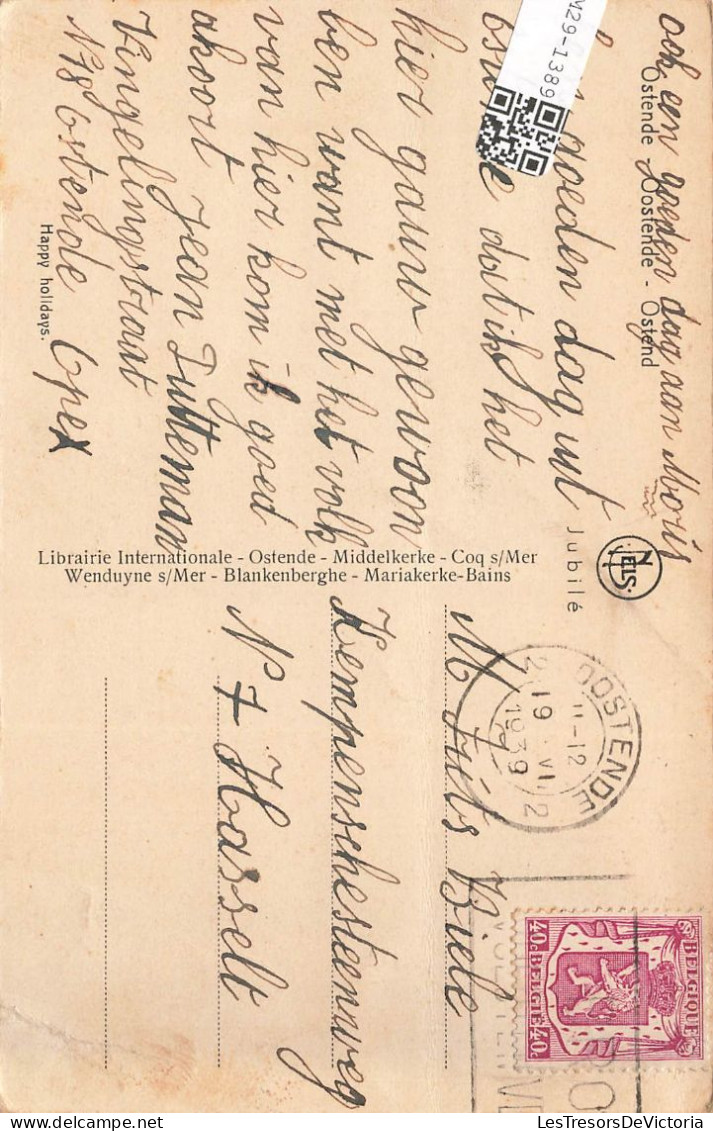 och een goeden dag aan Moris
Ostende - Oostende - Ostend
goeden dag uit
dat ik het
hier gauw gewoon
ben want met het volk
van hier kom ik goed
akoort Jean Dutteman
Vingelingstraat
N 78 Ostende Opex
Happy holidays.
M29-1389
Jubilé
NELS
Librairie Internationale - Ostende - Middelkerke - Coq s/Mer
Wenduyne s/Mer - Blankenberghe - Mariakerke-Bains
M Frits Biele
Kempenschesteenweg
N 7 Hasselt
OOSTENDE
11-12
19 VI
1939
2 2
BELGIQUE
40c BELGIË 40c
LesTresorsDeVictoria